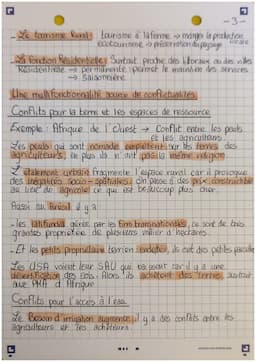 - 3 -
- Le tourisme Rural : tourisme à la ferme → manger la production locale
écotourisme → préservation du paysage
- La fonction Résidentielle : Surtout proche des littoraux ou des villes
Résidentielle → permanente, permet le maintien des services
→ saisonnière
Une multifonctionnalité source de conflictualités
Conflits pour la terre et les espaces de ressource
Exemple : Afrique de l'Ouest → Conflit entre les peuls
et les agriculteurs
Les peuls qui sont nomade empiètent sur les terres des
agriculteurs, en plus ils n'ont pas la même religion
L'étalement urbain fragmente l'espace rural car il provoque
des inégalités socio-spatiales. On passe à des prix constructible
au lieu de agricole ce qui est beaucoup plus cher.
Aussi au Brésil il y a
- les latifundia gérés par les firmes transnationales. Ce sont de très
grandes propriétés de plusieurs millier d'hectares.
- Et les petits propriétaire terrien endettés, ils ont des petites parcelles
Les USA voient leur SAU qui car il y a une
désertification des sols. Alors ils achètent des terres, surtout
aux PMA d'Afrique
Conflits pour l'accès à l'eau
Le Besoin d'irrigation augmente, il y a des conflits entre les
agriculteurs et les